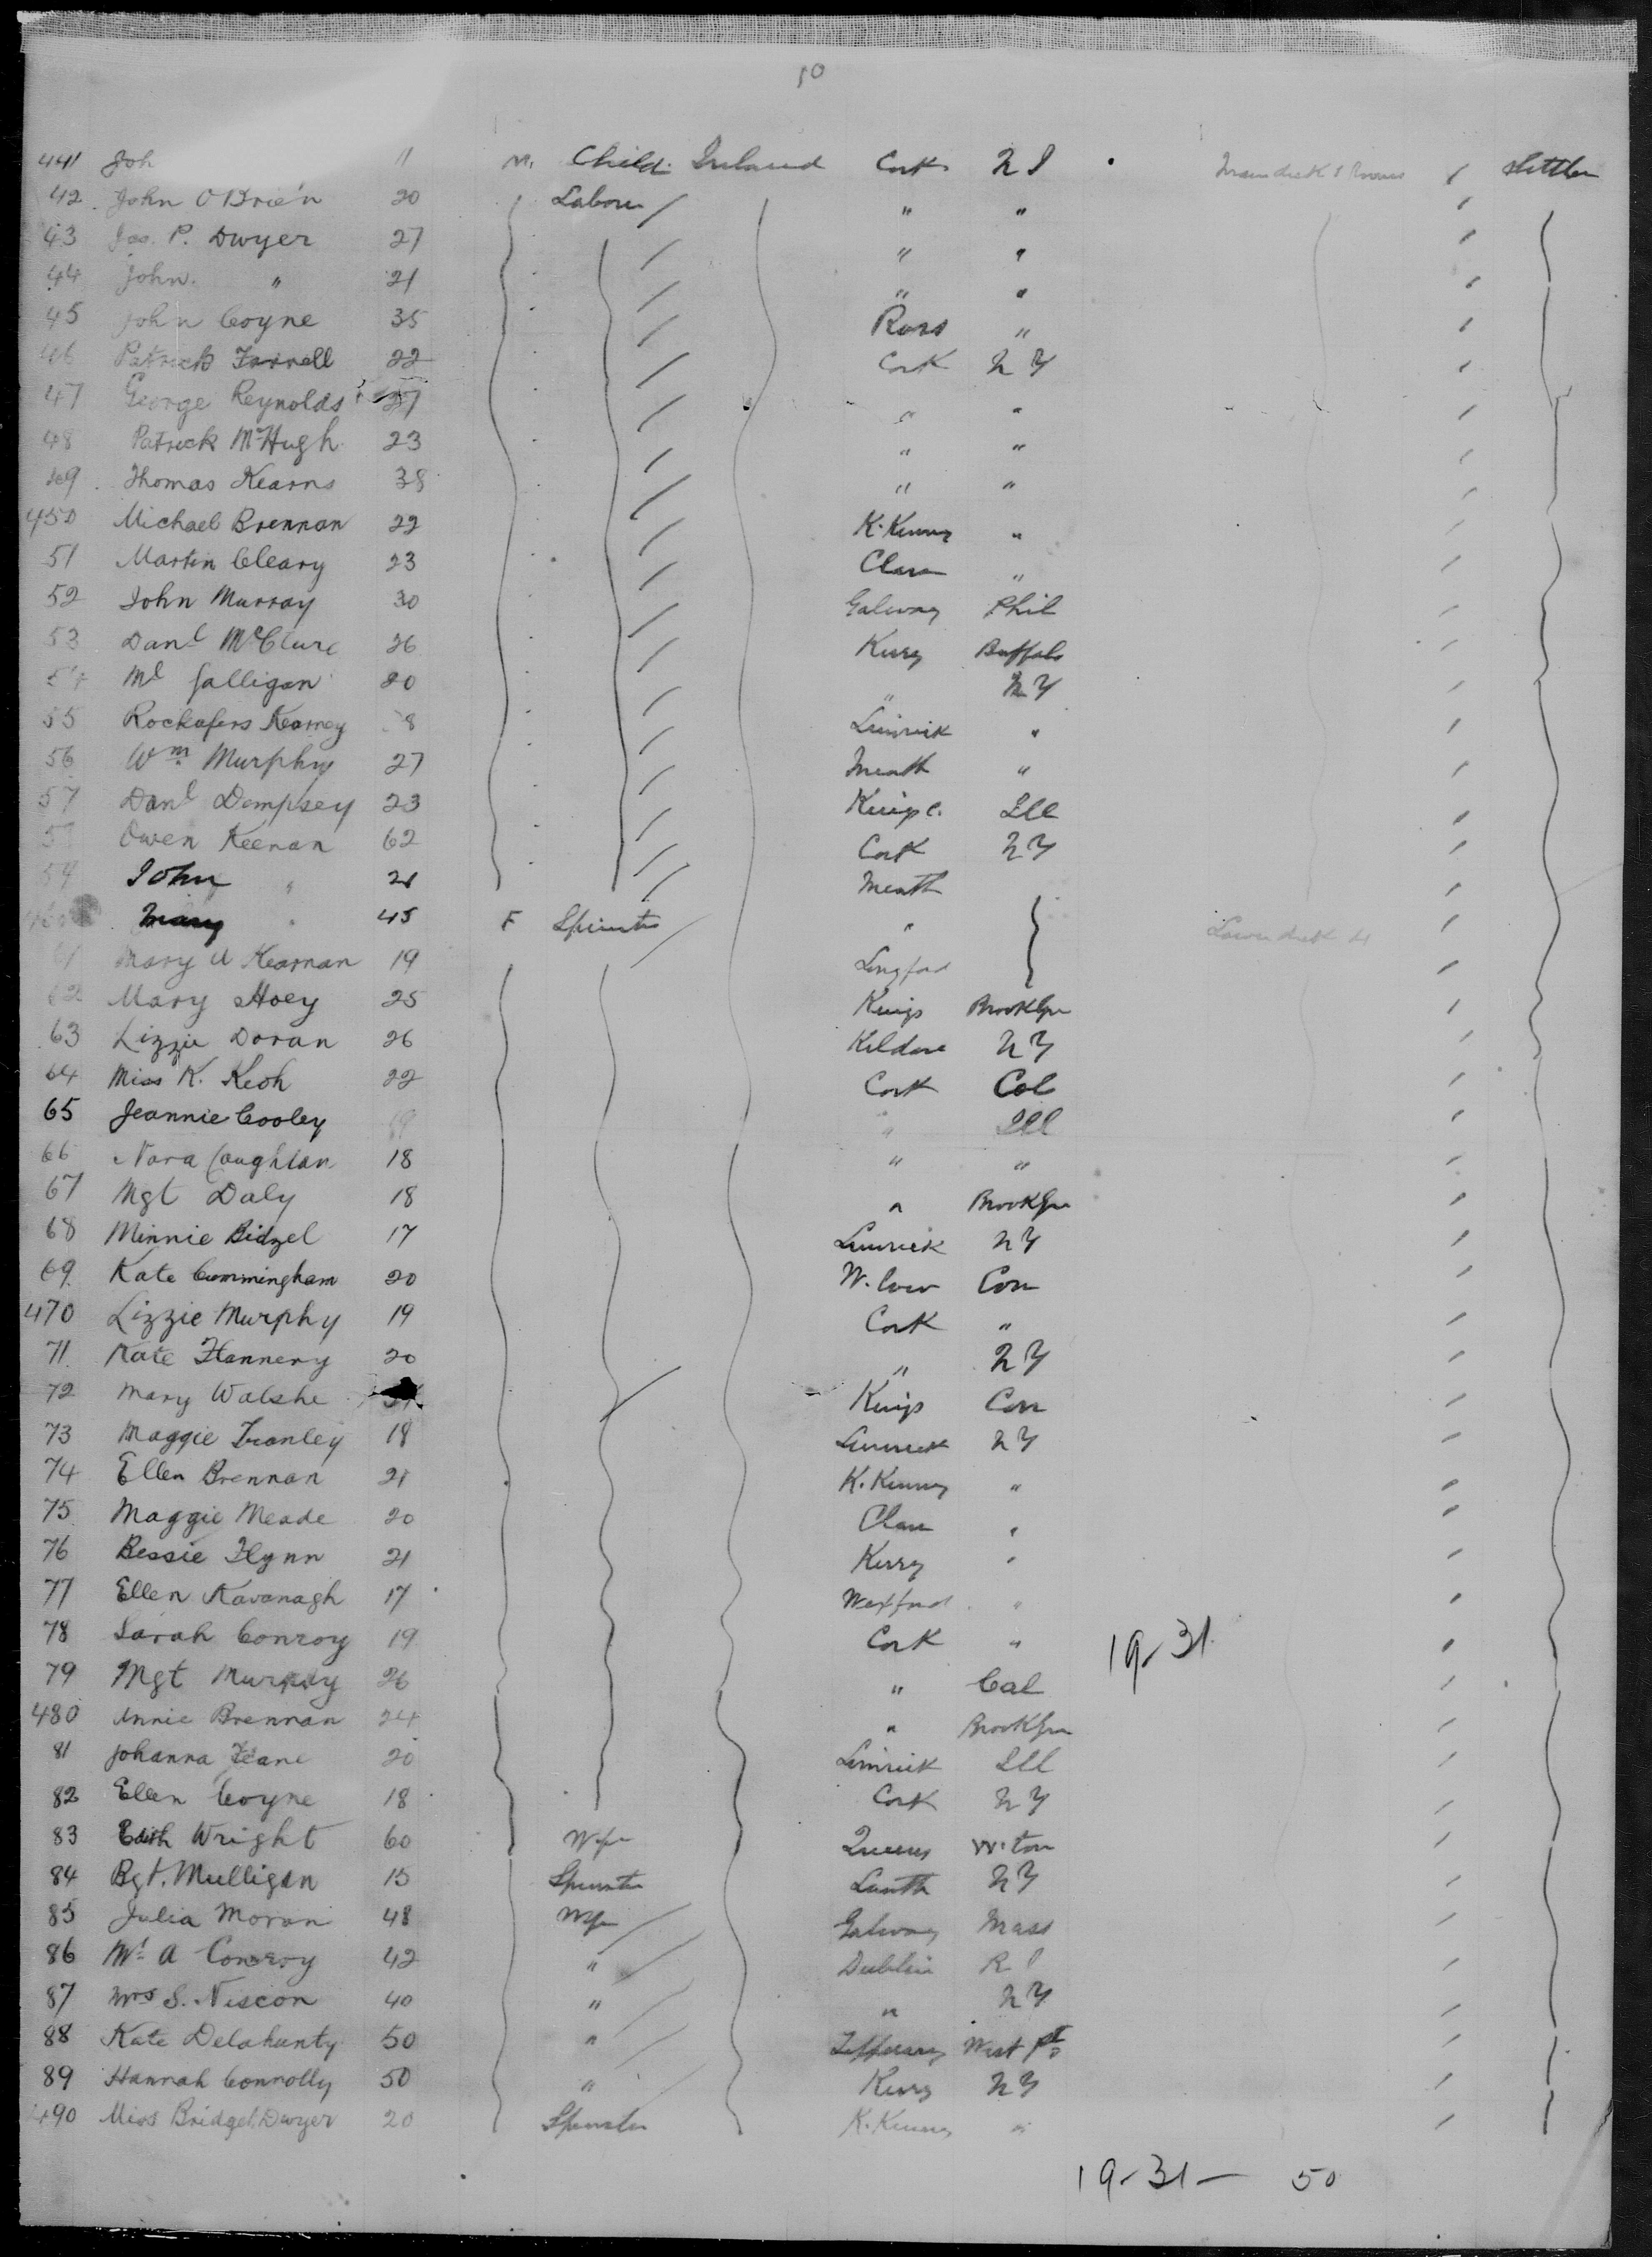 50
441 Joh 11 M. Child Ireland Cork N J Main deck 8 Rooms / Settler
42 John O'Brien 20 Labour / " "
43 Jas. P. Dwyer 27 / " "
44 John. " 21 / " "
45 John Coyne 35 / Ross "
46 Patrick Farrell 22 / Cork N Y
47 George Reynolds 27 / " "
48 Patrick McHugh 23 / " "
49 Thomas Kearns 38 / " "
450 Michael Brennan 22 / K. Kenny "
51 Martin Cleary 23 / Clare "
52 John Murray 30 / Galway Phil
53 Danl McClure 26 / Kerry Buffalo
54 Ml Galligan 20 / " N Y
55 Kearney 8 / Limrick "
56 Wm Murphy 27 / Meath "
57 Danl Dempsey 23 / Kings C. Ill
5 Owen Keenan 62 / Cork N Y
59 John " 21 / Meath
Mary " 45 F Spinster / " Lower deck
61 Mary A Kearnan 19 Longford
62 Mary Hoey 25 Kings Brooklyn
63 Lizzie Doran 26 Kildare N Y
64 Miss K. Keoh 22 Cork Col
65 Jeannie Cooley 19 " Ill
66 Nora Coughlan 18 " "
67 Mgt Daly 18 " Brooklyn
68 Minnie Bidzel 17 Limrick N Y
69 Kate Cummingham 20 W. low Con
470 Lizzie Murphy 19 Cork "
71 Kate Flannery 20 " N Y
72 Mary Walshe Kings Con
73 Maggie Franley 18 Limrick N Y
74 Ellen Brennan 21 K. Kenny "
75 Maggie Meade 20 Clare "
76 Bessie Flynn 21 Kerry "
77 Ellen Kavanagh 17 Wexford "
78 Sarah Conroy 19 Cork " 19-31
79 Mgt Murphy 26 " Cal
480 Annie Brennan 24 " Brooklyn
81 Johanna Feane 20 Limrick Ill
82 Ellen Coyne 18 Cork N Y
83 Edith Wright 60 Wife Queens W. ton
84 Bgt. Mulligan 15 Spinster Louth N Y
85 Julia Moran 48 Wife / Galway Mass
86 Mrs A Conroy 42 " / Dublin R I
87 Mrs S. Niscon 40 " / " N Y
88 Kate Delahunty 50 " / Tipperary West Pt
89 Hannah Connolly 50 " / Kerry N Y
490 Miss Bridget Dwyer 20 Spinster K. Kenny "
19-31- 50